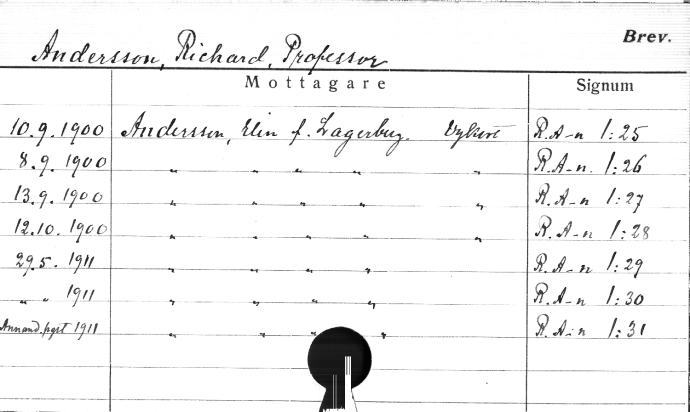 Brev.
Andersson, Richard, Professor
Mottagare Signum
10.9.1900 Andersson, Elin f. Lagerberg. Vykort R.A-n 1:25
8.9.1900 " " " " " R.A-n. 1:26
13.9.1900 " " " " " R.A-n 1:27
12.10.1900 " " " " " R.A-n 1:28
29.5.1911 " " " " R.A-n 1:29
" " 1911 " " " " R.A-n 1:30
Annand. pgst 1911 " " " " R.A-n 1:31